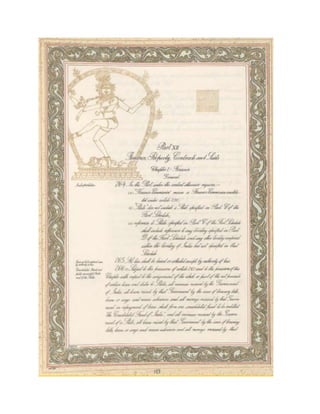 Part XII
Finance, Property, Contracts and Suits
Chapter I – Finance
General
Interpretation.
264. In this Part, unless the context otherwise requires,—
(a) "Finance Commission" means a Finance Commission constitu-
ted under article 280;
(b) "State" does not include a State specified in Part C of the
First Schedule;
(c) references to States specified in Part C of the First Schedule
shall include references to any territory specified in Part
D of the First Schedule and any other territory comprised
within the territory of India but not specified in that
Schedule.
265. No tax shall be levied or collected except by authority of law.
266. (1) Subject to the provisions of article 267 and to the provisions of this
Chapter with respect to the assignment of the whole or part of the net proceeds
of certain taxes and duties to States, all revenues received by the Government
of India, all loans raised by that Government by the issue of treasury bills,
loans or ways and means advances and all moneys received by that Govern-
ment in repayment of loans shall form one consolidated fund to be entitled
"the Consolidated Fund of India", and all revenues received by the Govern-
ment of a State, all loans raised by that Government by the issue of treasury
bills, loans or ways and means advances and all moneys received by that